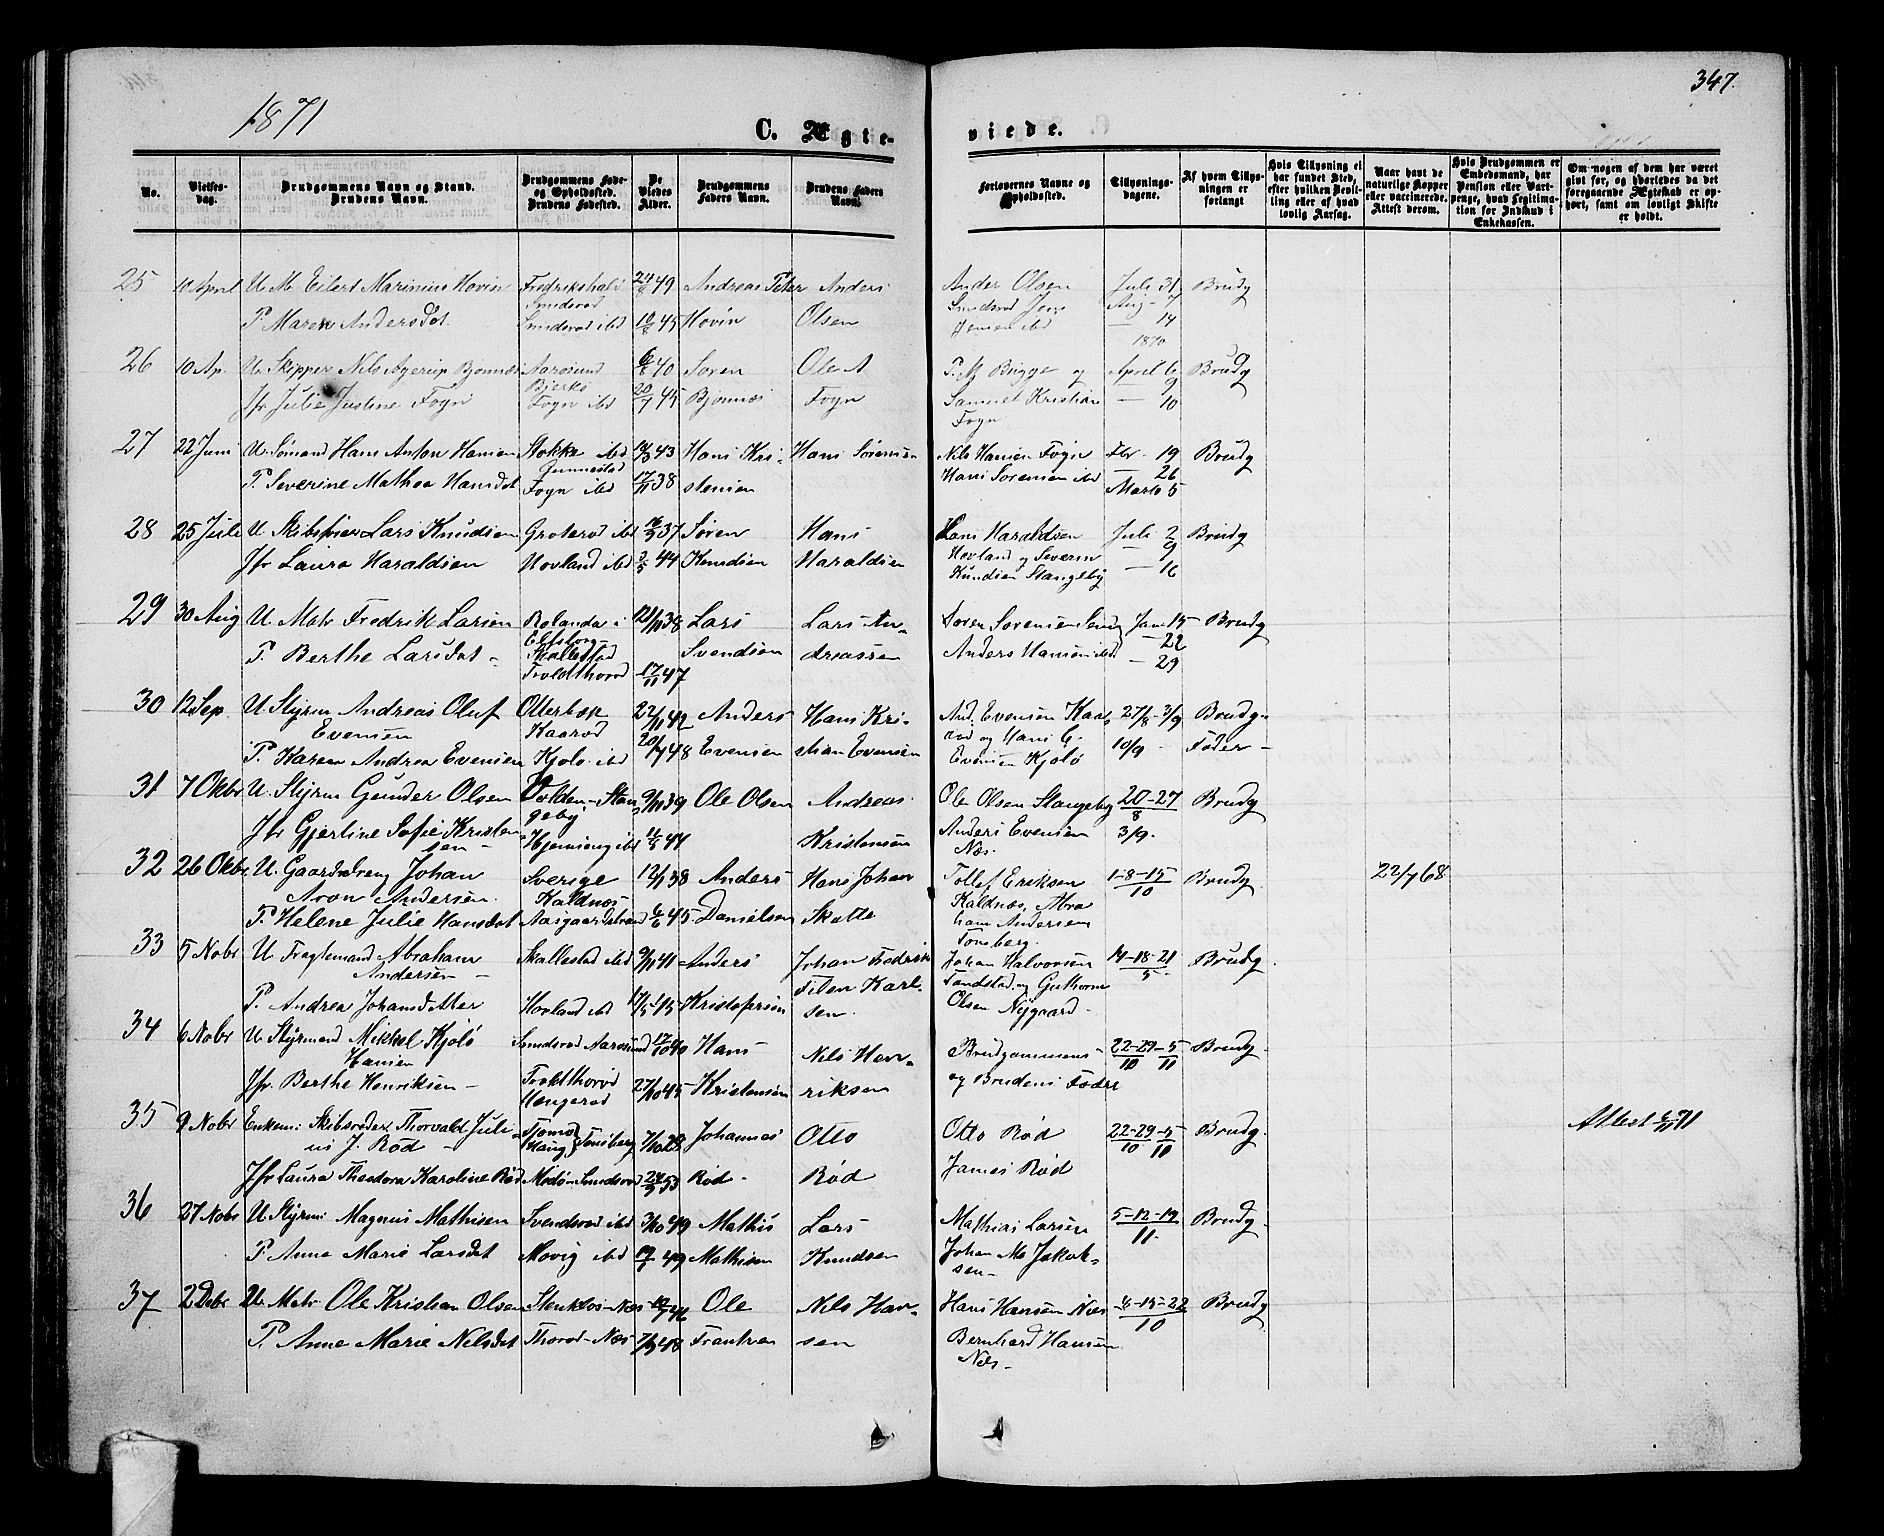 347.
1871
C. Ægte-
viede.
No.
Vielses-
dag.
Brudgommens Navn og Stand.
Brudens Navn.
Brudgommens Føde-
og Opholdssted.
Brudens Fødested.
De
Viedes
Alder.
Brudgommens
Faders Navn.
Brudens Faders
Navn.
Forlovernes Navne og
Opholdssted.
Tillysnings-
dagene.
Af hvem Tillys-
ningen er
forlangt
Hvis Tillysning ei
har fundet Sted,
efter hvilken Bevil-
ling eller af hvad
lovlig Aarsag.
Naar havt de
naturlige Kopper
eller vaccinerede.
Attest derom.
Hvis Brudgommen er
Embedsmand, har
Pension eller Vart-
penge, hvad Legitima-
tion for Indskud i
Enkekassen.
Om nogen af dem har været
gift før, og hvorledes da det
foregaaende Ægteskab er op-
hørt, samt om lovligt Skifte
er holdt.
25 10 April U. M. Eilert Marinius Hovin Fredrikshald 49 Andreas Peter Anders Ander Olsen Juli 31 Brudg
Smiderød Aug - 7
P. Maren Andersdat. Smiderød ibd 10/8 45 Hovin Olsen Jensen ibd — 14
1870
26 10 Ap. U. Skipper Nils Agerup Bjønnes Aarøsund 6/8 40 Soren Ole A. P. M. Brigge og April 6 Brudg
Bjerkø — 9
Jfr Julie Justine Fogn Fogn ibd 20/7 45 Bjønnes Fogn Samuel Kristian — 10
Fogn
27 22 Juni U. Sømand Hans Anton Hansen Stokke ibd 43 Hans Kri- Hans Sørensen Nils Hansen Fogn Fbr. 19 Brudg
Gunnestad — 26
P. Severine Mathea Hansdat Fogn ibd 17/11 38 stensen Hans Sorensen ibd Marts 5
28 25 Juli U. Lars Knudsen Groterød ibd 37 Søren Hans Hans Haraldsen Juli 2 Brudg
Hovland og Severin — 9
Jfr Laura Haraldsen Hovland ibd 3/5 44 Knudsen Haraldsen Knudsen Stangeby — 16
29 30 Aug U. Matr Fredrik Larsen Rolanda i 38 Lars Lars An- Soren Sorensen Jan 15 Brudg
Elfsborg — 22
P. Berthe Larsdat - Skallestad Svendsen dreassen Anders Hansen ibd — 29
Troldthorød 17/11 47
30 12 Sep. U. Styrm Andreas Oluf Otterbæk 22/11 42 Anders Hans Kri- And. Evensen Kaa- 27/8 - 3/9 Brudg-
Evensen Kaarød rød og Hans C.
P. Karen Andrea Evensen Kjolø ibd 20/7 48 Evensen stian Evensen Evensen Kjolø 10/9 - Fader -
31 7 Oktbr U. Styrm Gunder Olsen Volden - Stan 9/11 39 Ole Olsen Andreas Ole Olsen Stangeby 20-27/8 Brudg
geby
Jfr Gjertine Sofie Kristen Hjemseng ibd 44 Kristensen Anders Evensen 3/9.
sen - Næs.
32 26 Oktbr U. Gaardsdreng Johan Sverige 12/1 38 Anders Hans Johan Tollef Eriksen 1-8-15/10 Brudg. 22/7 68
Aron Andersen. Kaldnæs Kaldnæs, Abra
P. Helene Julie Hansdat Aasgaardstrand 6/6 45 Danielsen Skotte ham Andersen
Tonsberg.
33 5 Nobr U. Fragtemand Abraham Skallestad ibd 9/11 41 Anders Johan Fredrik Johan Halvorsen 14-18-21/5 Brudg.
Andersen - Filen Karl- Tandstad, og Guthorm
P. Andrea Johansdatter Hovland ibd 17/5 45 Kristofersen sen. Olsen Nygaard.
34 6 Nobr U. Styrmand Mikkel Kjolø Smiderød Aarøsund 17/10 40 Hans Nils Hen- Brudgommens- 22-29/10 - 5/11 Brudg.
Hansen
Jfr. Berthe Henriksen - Troldthorød 27/10 45 Kristensen riksen og Brudens Fædre
Hængerød
35 9 Nobr Enkem: Skibsreder Thorvald Juli- Tjømø Tønsberg 7/10 28 Johannes Otto Otto Rød 22-29/10 - 5/11 Brudg. Attest 6/11 71
us J. Rød - Haug
Jfr Laura Theodora Karoline Rød Medø - Smiderød 24/9 53 Rød. Rød James Rød
36 27 Nobr U. Styrm: Magnus Mathisen Svenderød ibd 3/10 49 Mathis Lars Mathias Larsen 5-12-19/11. Brudg.
P. Anne Marie Larsdat Movig ibd 49 Mathisen Knudsen Johan M. Jakob-
sen -
37 2 Debr U. Matr Ole Kristian Olsen Stenkløs - Næs 46 Ole Nils Han- Hans Hansen Næs -15-22/10 Brudg
P. Anne Marie Nilsdat Thorød - Næs 48 Frantsen sen Bernhard Hansen
Næs -